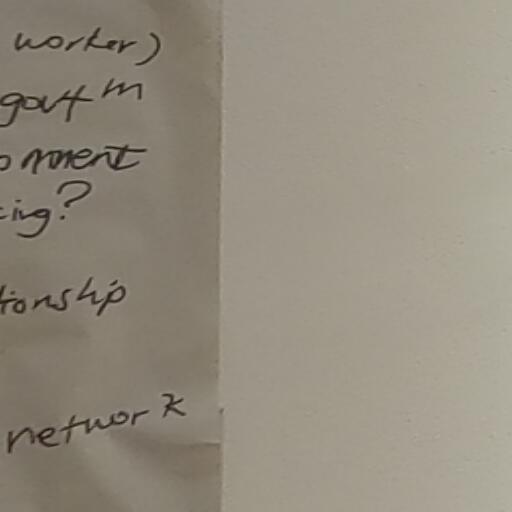 worker)
govt m
oment
cing?
tionship
network